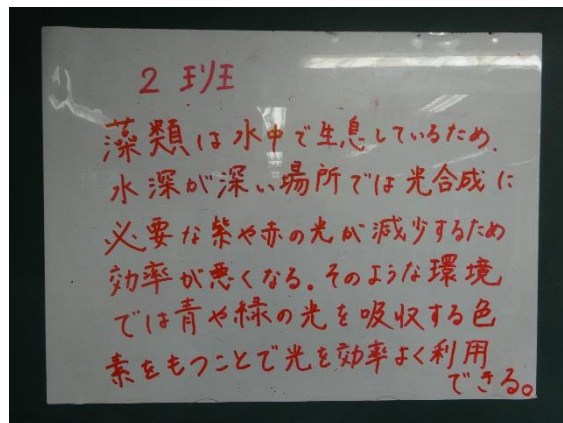 2班
藻類は水中で生息しているため、
水深が深い場所では光合成に
必要な紫や赤の光が減少するため
効率が悪くなる。そのような環境
では青や緑の光を吸収する色
素をもつことで光を効率よく利用
できる。